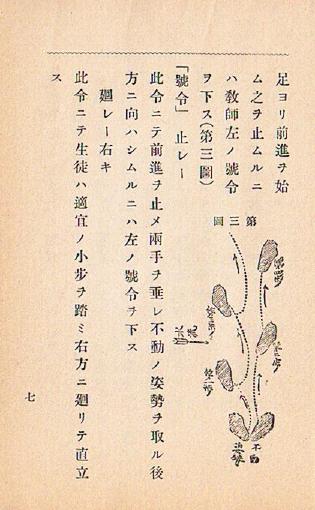 足ヨリ前進ヲ始
ム之ヲ止ムルニ
ハ敎師左ノ號令
ヲ下ス(第三圖)
「號令」 止レー
此令ニテ前進ヲ止メ兩手ヲ垂レ不動ノ姿勢ヲ取ル後
方ニ向ハシムルニハ左ノ號令ヲ下ス
廻レー右キ
此令ニテ生徒ハ適宜ノ小歩ヲ踏ミ右方ニ廻リテ直立
ス
第三圖
不動
姿勢
七